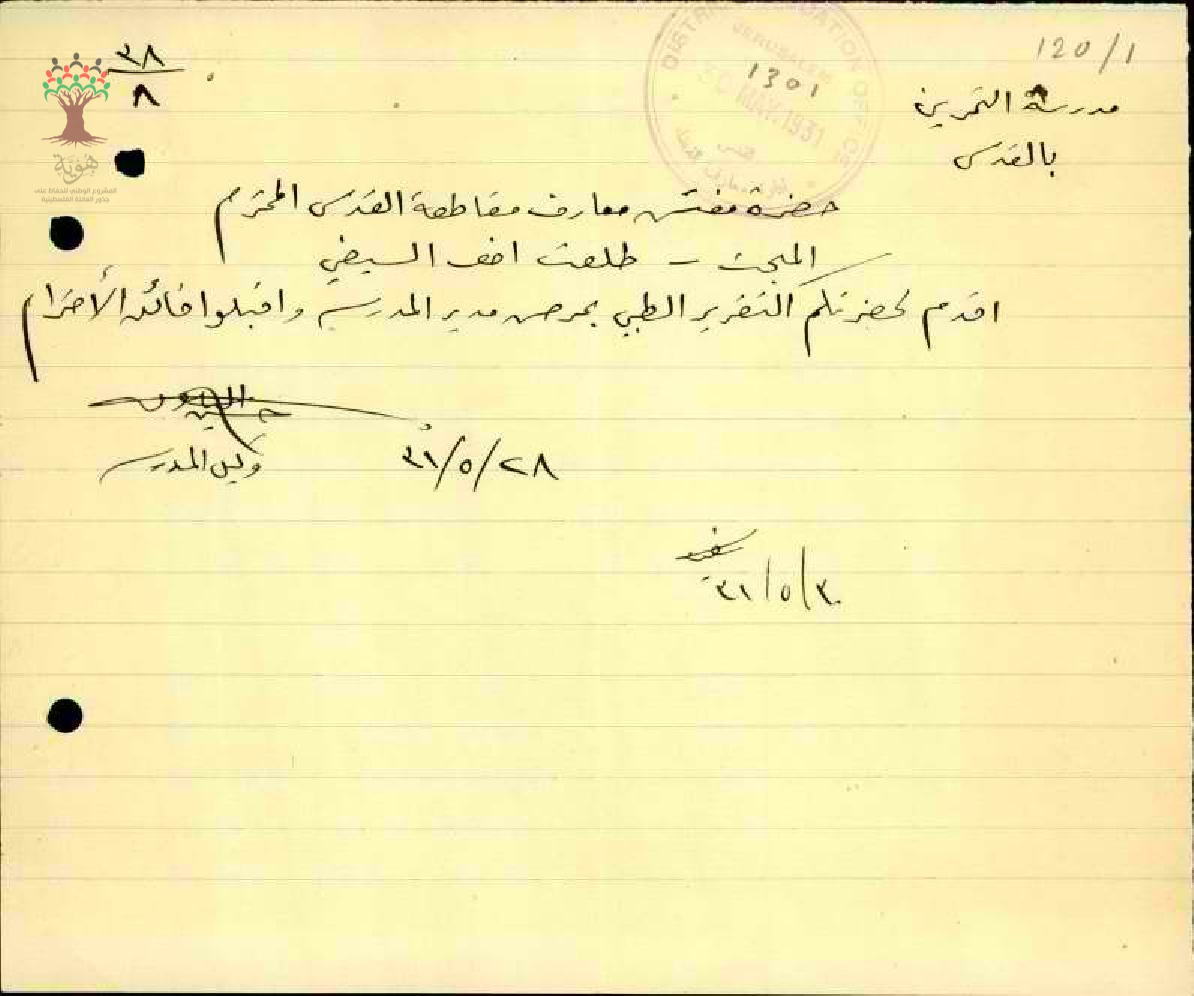 120/1
٣٨
٨
DISTRICT EDUCATION OFFICE
JERUSALEM
1301
30 MAY. 1931
القدس
مدرسة التمرين
بالقدس
حضرة مفتش معارف مقاطعة القدس المحترم
المبحث – طلعت افف السيفي
اقدم لحضرتكم التقرير الطبي بمرض مدير المدرسه واقبلوا فائق الأحترام
٢٨/٥/٣١
وكيل المدرسه
٣٠/٥/٣١
هوية
المشروع الوطني للحفاظ على
جذور العائلة الفلسطينية